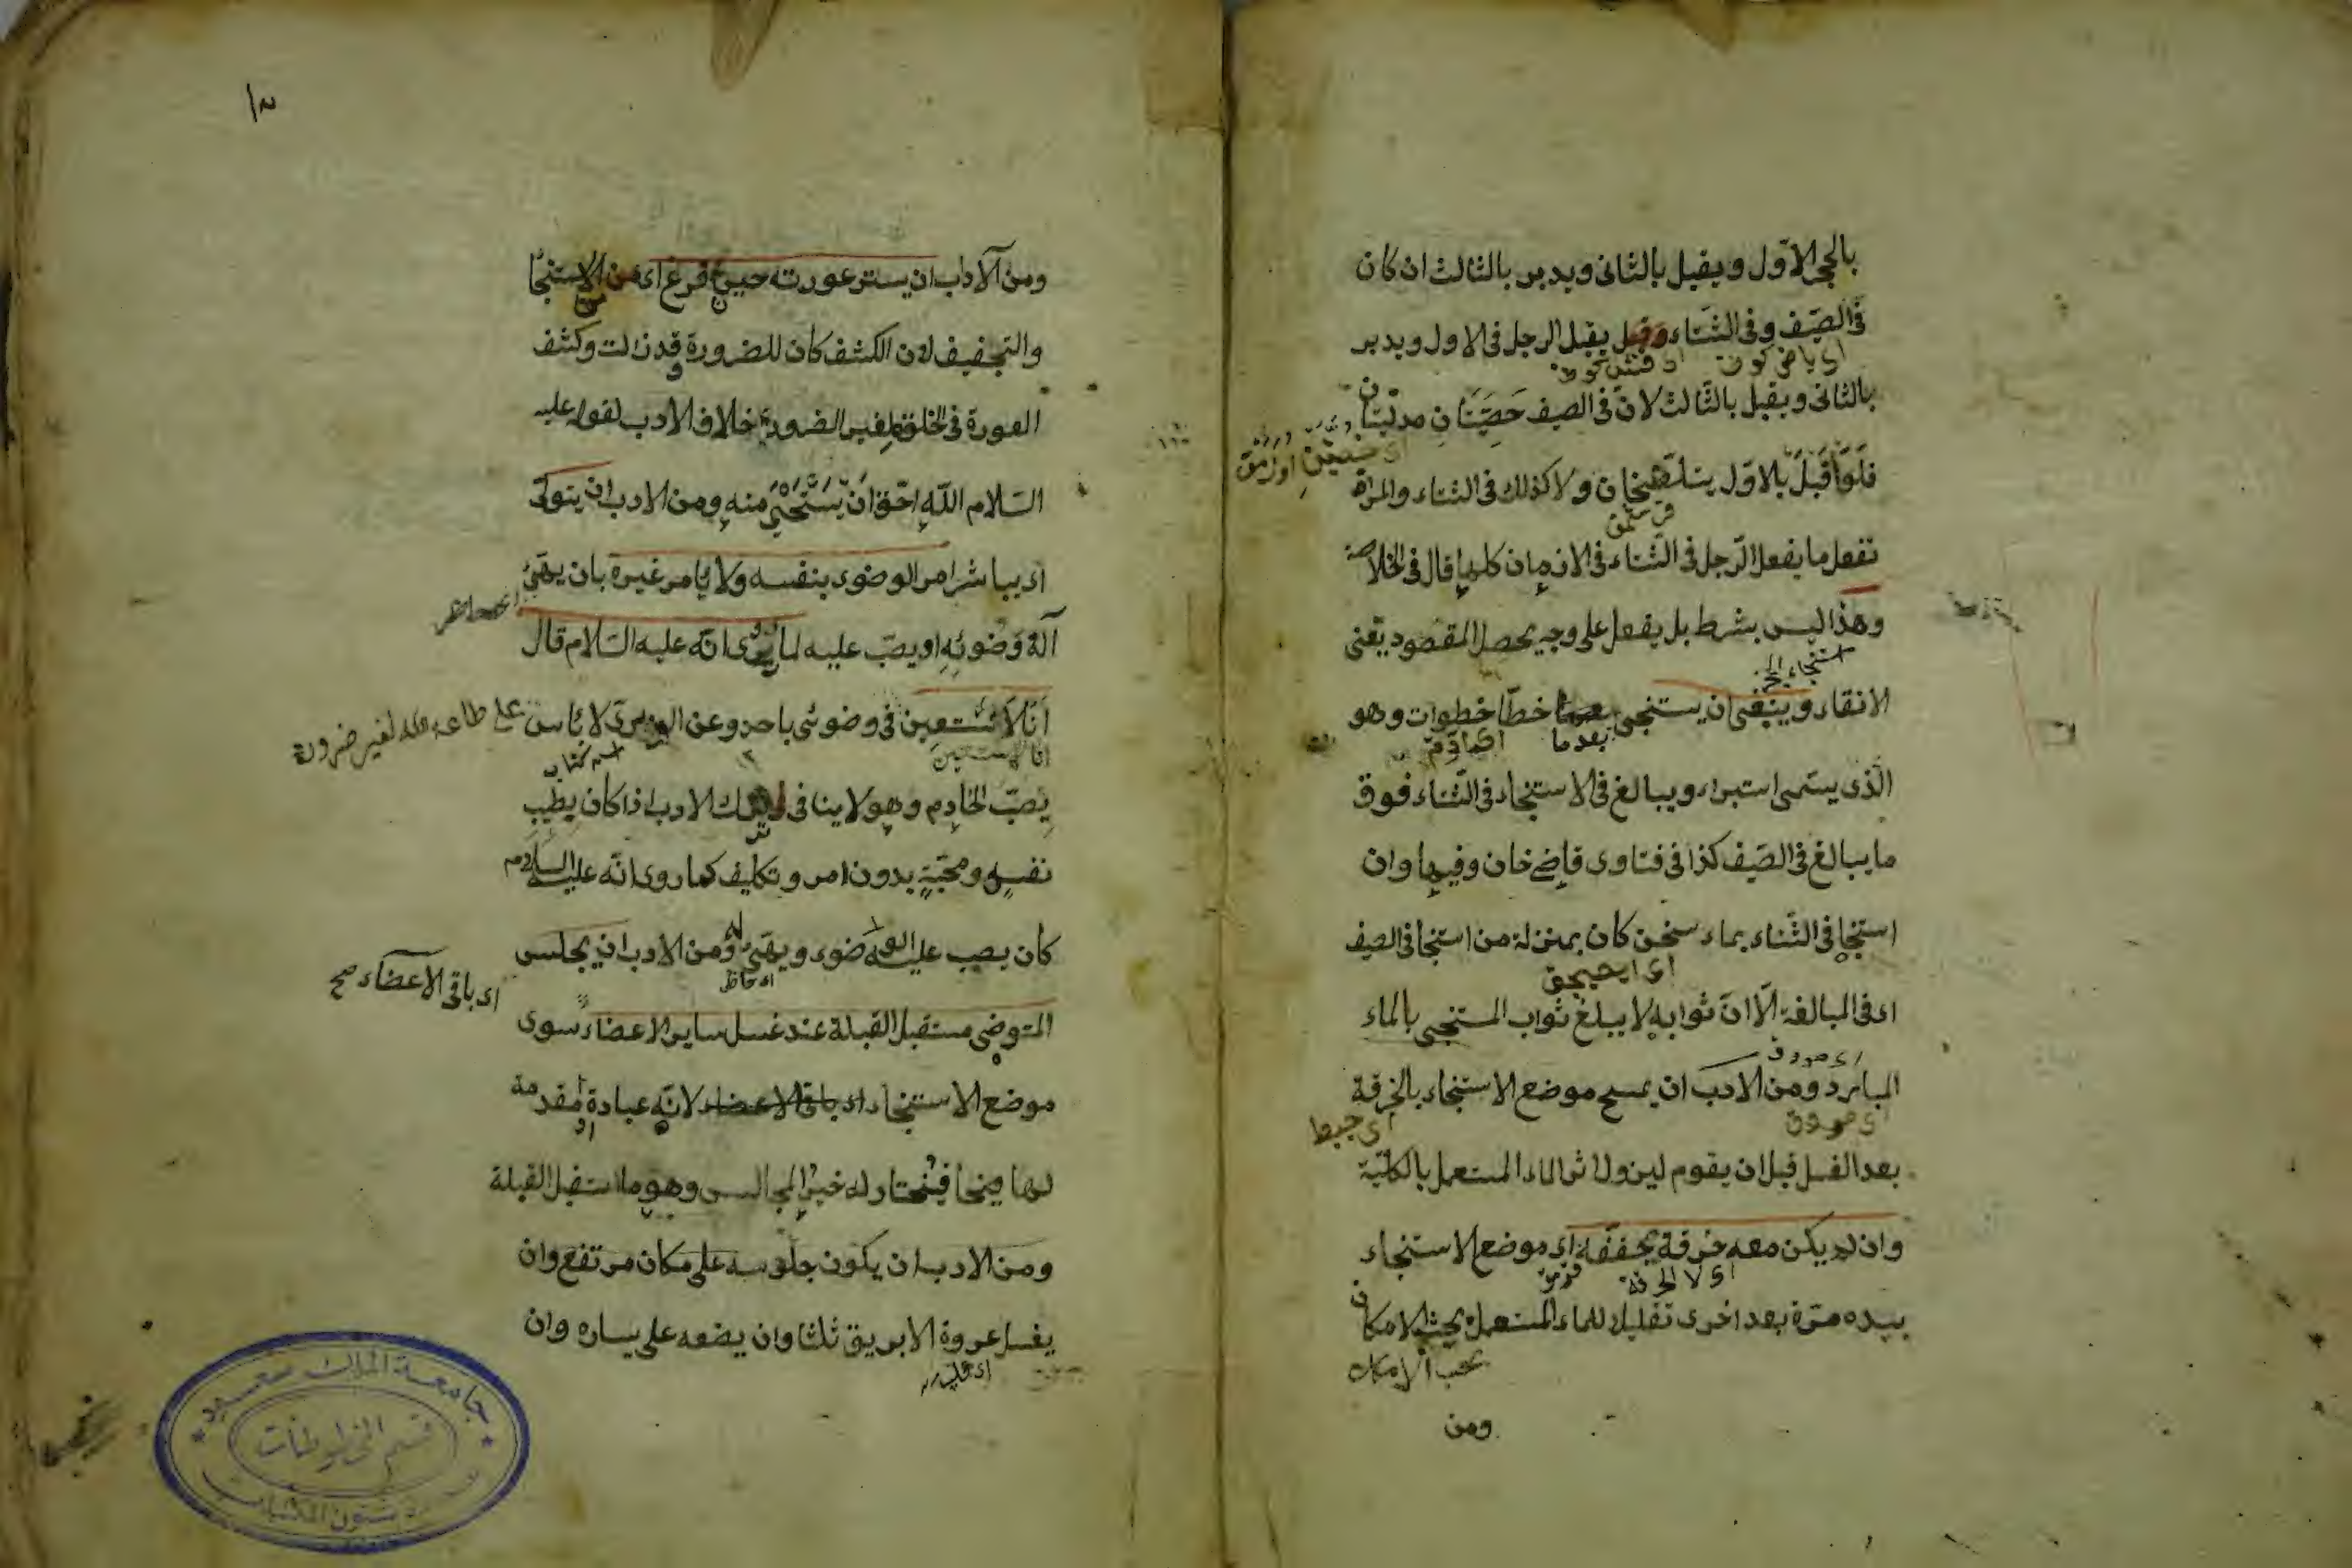 بالحجر الاوّل ويقبل بالثانى ويدبر بالثالث ان كان
فى الصّيف وفى الشّتاء وقيل يقبل الرجل فى الاول ويدبر
بالثانى ويقبل بالثّالث لانّ فى الصيف خصيتان مدلّيتان
فلو اقبل بالاوّل يتلطخان ولا كذلك فى الشتاء والمرأة
تفعل ما يفعل الرّجل فى الشّتاء فى الازمان كلها قال فى الخلاصة
وهذا ليس بشرط بل يفعل على وجه يحصل المقصود يعنى
استنجاء
الانقاء وينبغى ان يستنجى خطا خطوات وهو
بعدما
الّذى يسمّى استبراء ويبالغ فى الاستنجاء فى الشّتاء فوق
ما يبالغ فى الصّيف كذا فى فتاوى قاضى خان وفيها وان
استنجا فى الشّتاء بماء سخن كان بمنزلة من استنجا فى الصيف
اى فى المبالغة الّا انّ ثوابه لا يبلغ ثواب المستنجى بالماء
البارد ومن الادب ان يمسح موضع الاستنجاء بالخرقة
بعد الغسل قبل ان يقوم ليزول اثر الماء المستعمل بالكليّة
وان لم يكن معه خرقة يجففه اى موضع الاستنجاء
بيده مرّة بعد اخرى تقليلا للماء المستعمل بحيث الامكان
بحسب الامكان
ومن
١٣
ومن الآداب ان يستر عورته حين فرغ اى من الاستنجا
والتجفيف لان الكشف كان للضرورة وقد زالت وكشف
العورة فى الخلوة لغير الضرورة خلاف الادب لقوله عليه
السّلام اللّه احقّ ان يستحيى منه ومن الادب ان يتولّى
اى يباشر امر الوضوء بنفسه ولا يأمر غيره بان يهيّئ
آلة وضوئه او يصبّ عليه لما روى انّه عليه السّلام قال
انا لا نستعين فى وضوئى باحد وعن الوبرى لا بأس
على طاعة الله لغير ضرورة
يصبّ الخادم وهو لا ينافى ترك الادب اذا كان يطيب
نفسه ومحبّة بدون امر وتكليف كما روى انّه عليه السلام
كان يصب عليه الوضوء ويهيّئ له ومن الادب ان يجلس
اى باقى الاعضاء صح
المتوضى مستقبل القبلة عند غسل ساير الاعضاء سوى
موضع الاستنجاء اى باقى الاعضاء لانّه عبادة او مقدمة
لها فيختار له خير المجالس وهو ما استقبل القبلة
ومن الادب ان يكون جلوسه على مكان مرتفع وان
يغسل عروة الابريق ثلثا وان يضعه على يساره وان
جامعة الملك سعود
قسم المخطوطات
شئون المكتبات